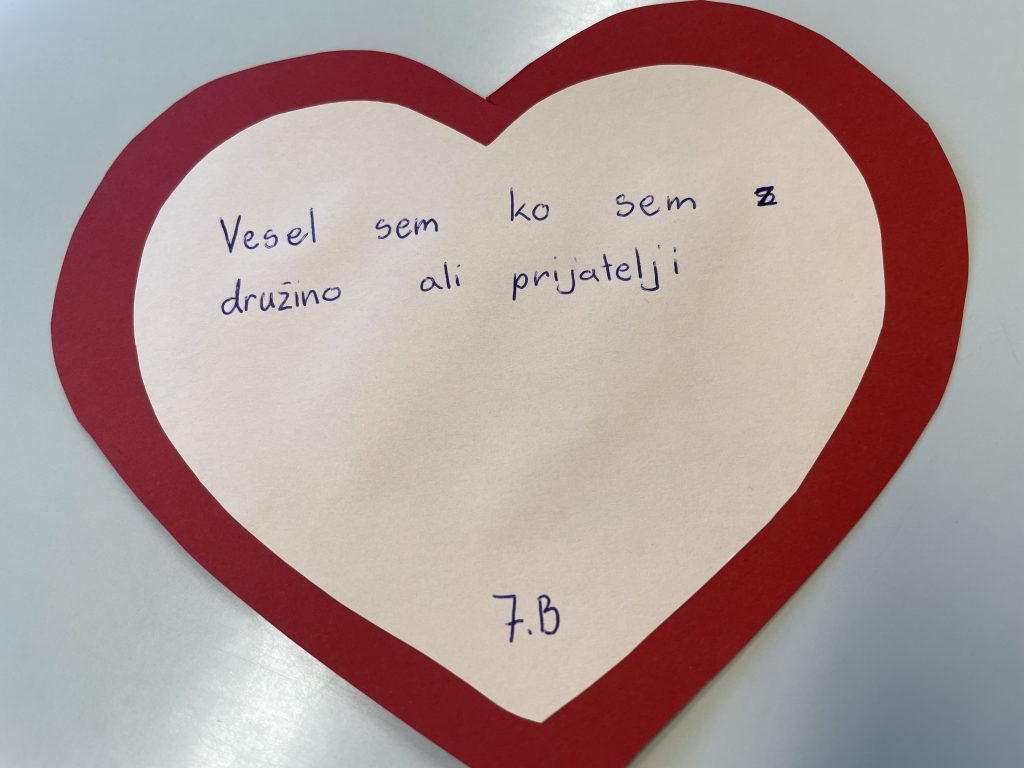 Vesel sem ko sem z
družino ali prijatelji
7.B